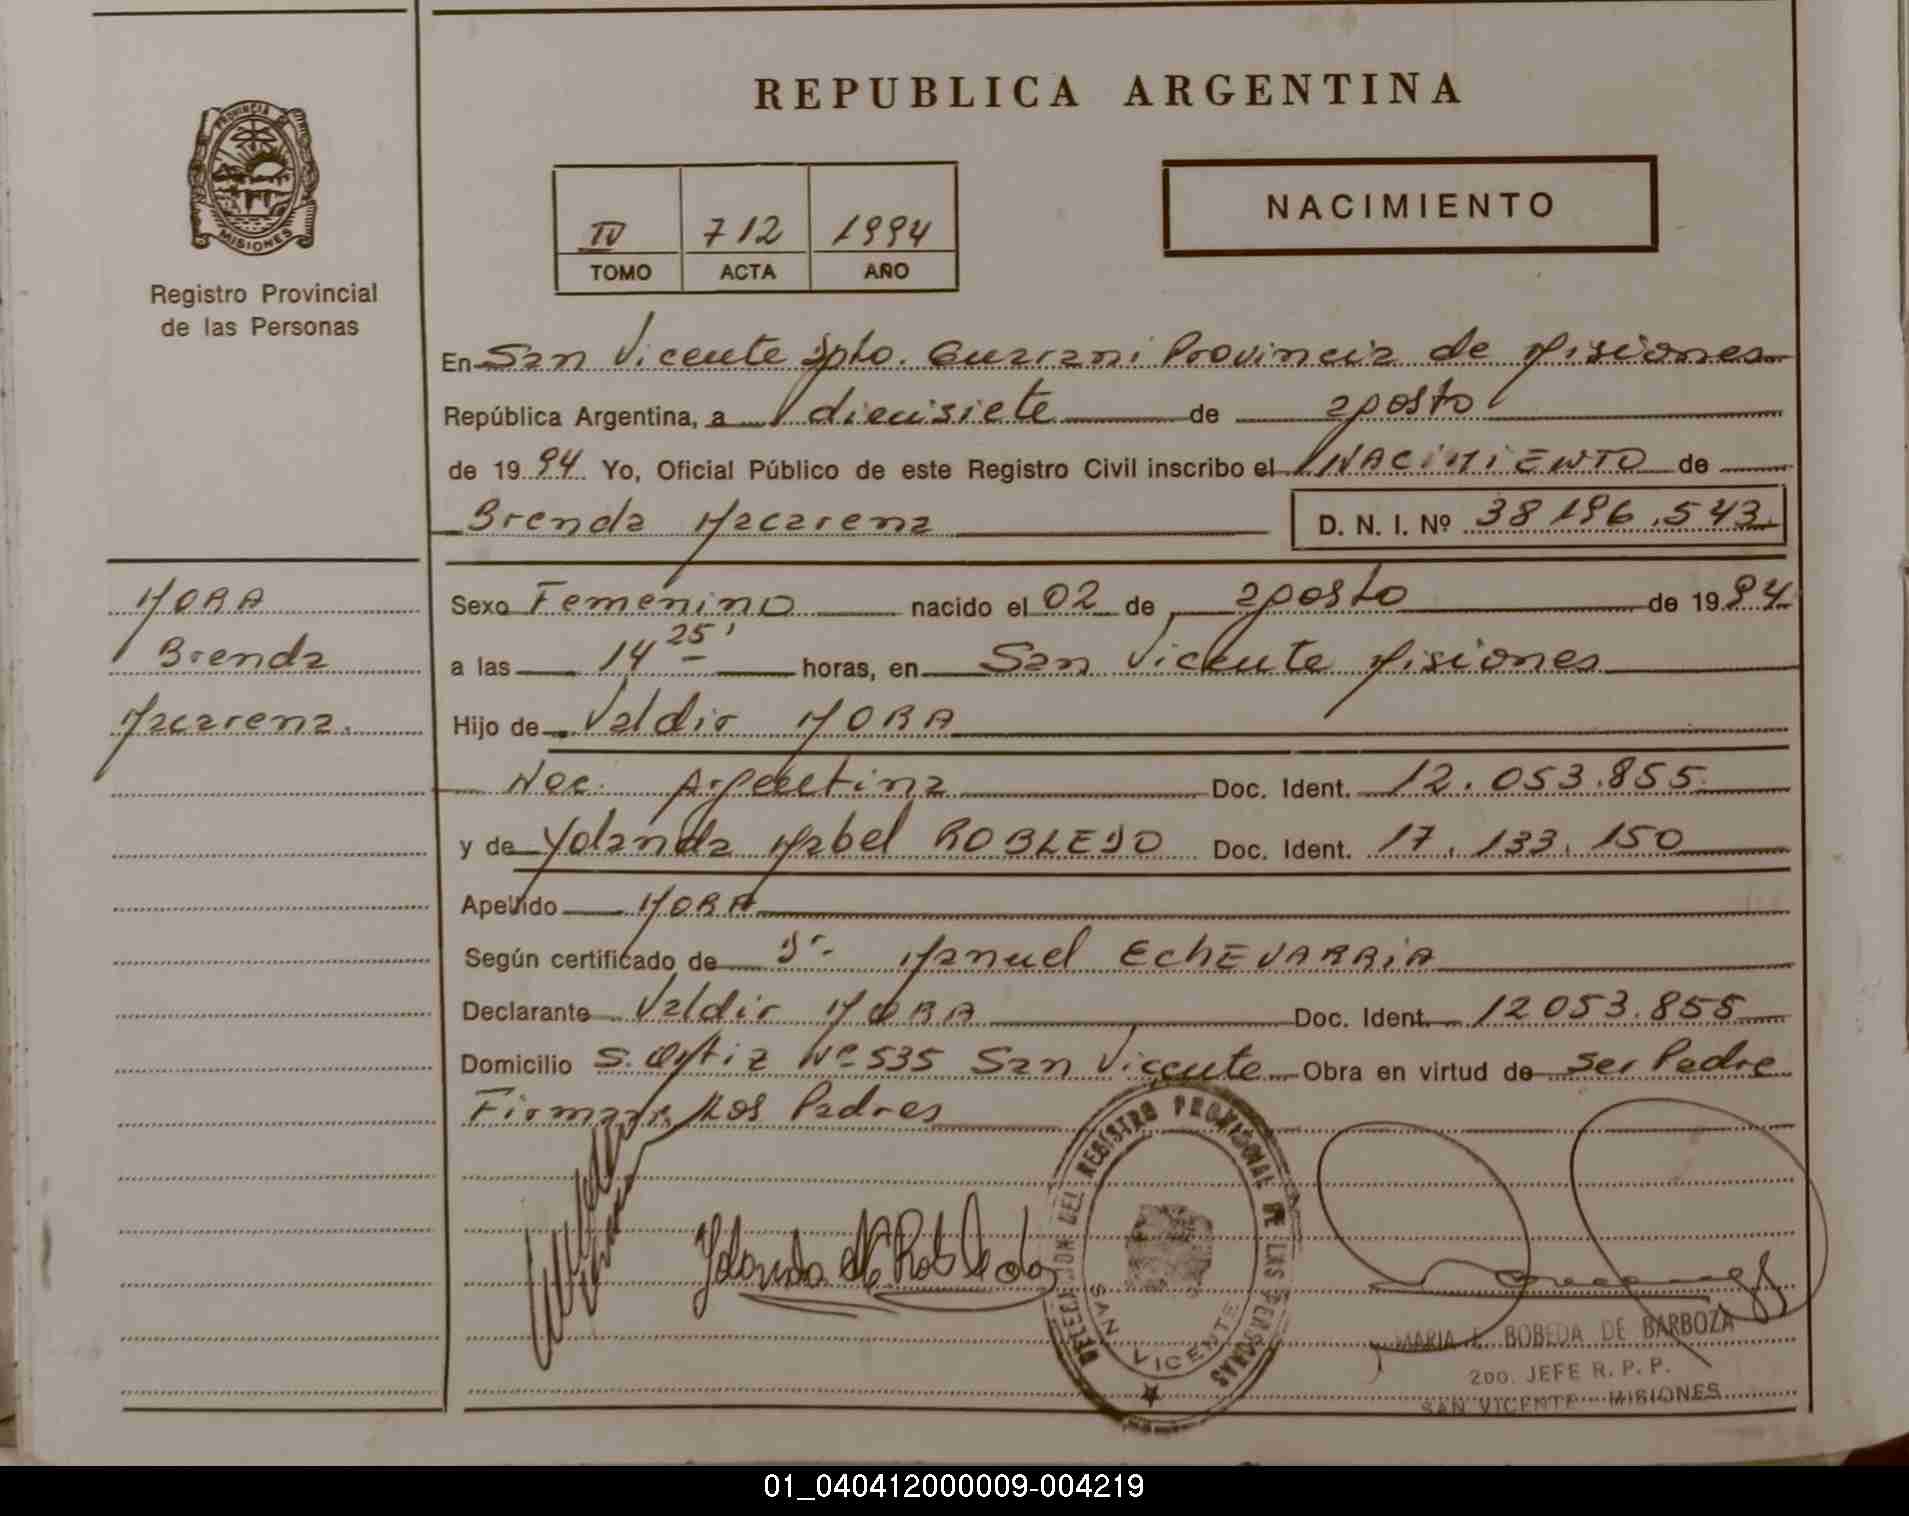 REPUBLICA ARGENTINA
PROVINCIA
MISIONES
Registro Provincial
de las Personas
IV 712 1994
TOMO ACTA AÑO
NACIMIENTO
En San Vicente Dpto. Guarani Provincia de Misiones
República Argentina, a diecisiete de agosto
de 1994 Yo, Oficial Público de este Registro Civil inscribo el NACIMIENTO de
Brenda Macarena D. N. I. Nº 38196.543.
MORA
Brenda
Macarena.
Sexo Femenino nacido el 02 de agosto de 1994
a las 14 25' horas, en San Vicente Misiones
Hijo de Valdir MORA
Nac. Argentina Doc. Ident. 12.053.855
y de Yolanda Mabel ROBLEDO Doc. Ident. 17.133.150
Apellido MORA
Según certificado de Dr. Manuel EchEVARRiA
Declarante Valdir MORA Doc. Ident. 12053.855
Domicilio S. Ortiz Nº 535 San Vicente Obra en virtud de ser Padre
Firman Los Padres
DELEGACION DEL REGISTRO PROVINCIAL DE LAS PERSONAS
SAN VICENTE
Yolanda de Robledo
MARIA E. BOBEDA DE BARBOZA
2DO. JEFE R. P. P.
SAN VICENTE - MISIONES
01_040412000009-004219